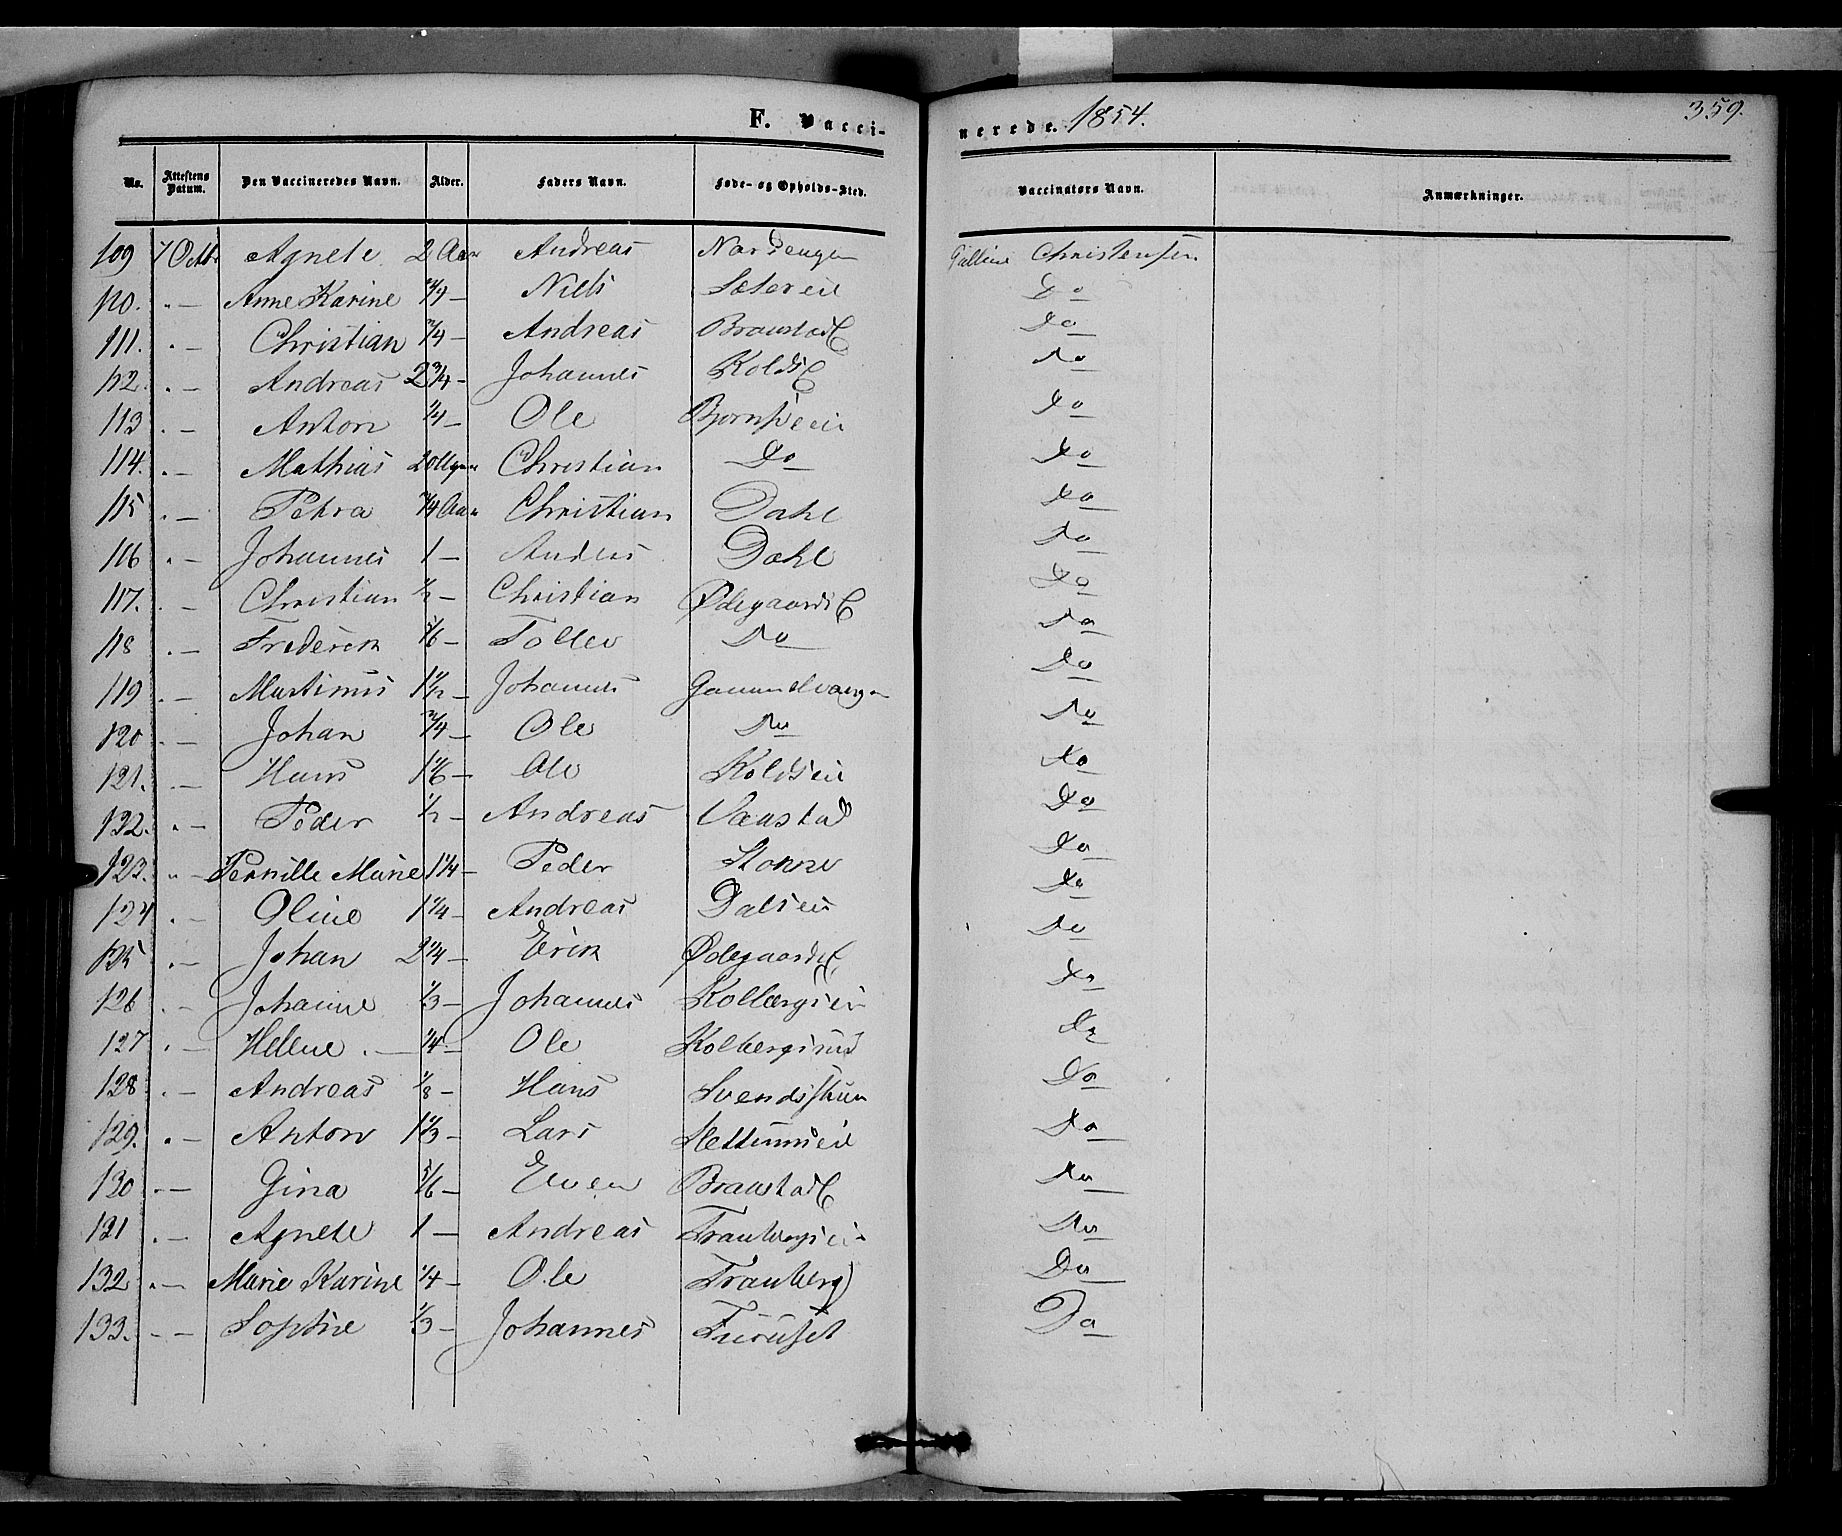 F. Vacci-
nerede. 1854.
359.
No. Attestens Datum. Den Vaccineredes Navn. Alder. Faders Navn. Føde- og Opholds-Sted. Vaccinators Navn. Anmærkninger.
109 7 Octbr Agnete 2 Aar Andreas Nordengen Christensen
110. " — Anne Karine — Niels Sætereie Do
111. " — Christian 3/4 — Andreas Braustad Do
112. " — Andreas 2 3/4 — Johannes Do
113 " — Anton 1/4 — Ole Do
114. " — Mathias 20 Uger Christian Do Do
115 " — Petra 3/4 Aar Christian Dahl Do
116 " — Johannes 1 — Anders Dahl Do
117. " — Christian 1/2 — Christian Ødegaards Do
118 " — Frederik 5/6 — Tollev Do Do
119 " — Martinus 1 1/2 — Johannes Do
120 " — Johan 3/4 — Ole Do Do
121. " — Hans 1 1/6 — Ole Koldseie Do
122. " — Peder 1/2 — Andreas Do
123. " — Pernille Marie 1 1/4 — Peder Do
124 " — Oline 1 1/4 — Andreas Dalseie Do
125 " — Johan 2 1/4 — Erik Ødegaards Do
126 " — Johanne 1/3 — Johannes Kolbergseie Do
127 " — Helene . — 1/4 — Ole Do
128. " — Andreas 1/8 — Hans Do
129. " — Anton 1 1/3 — Lars Do
130 " — Gina 5/6 — Even Braustad Do
131 " — Agnete 1 — Andreas Tranbergseie Do
132. " — Marie Karine 1/4 — Ole Tranberg Do
133. " — Sophie 1/3 — Johannes Furuset Do